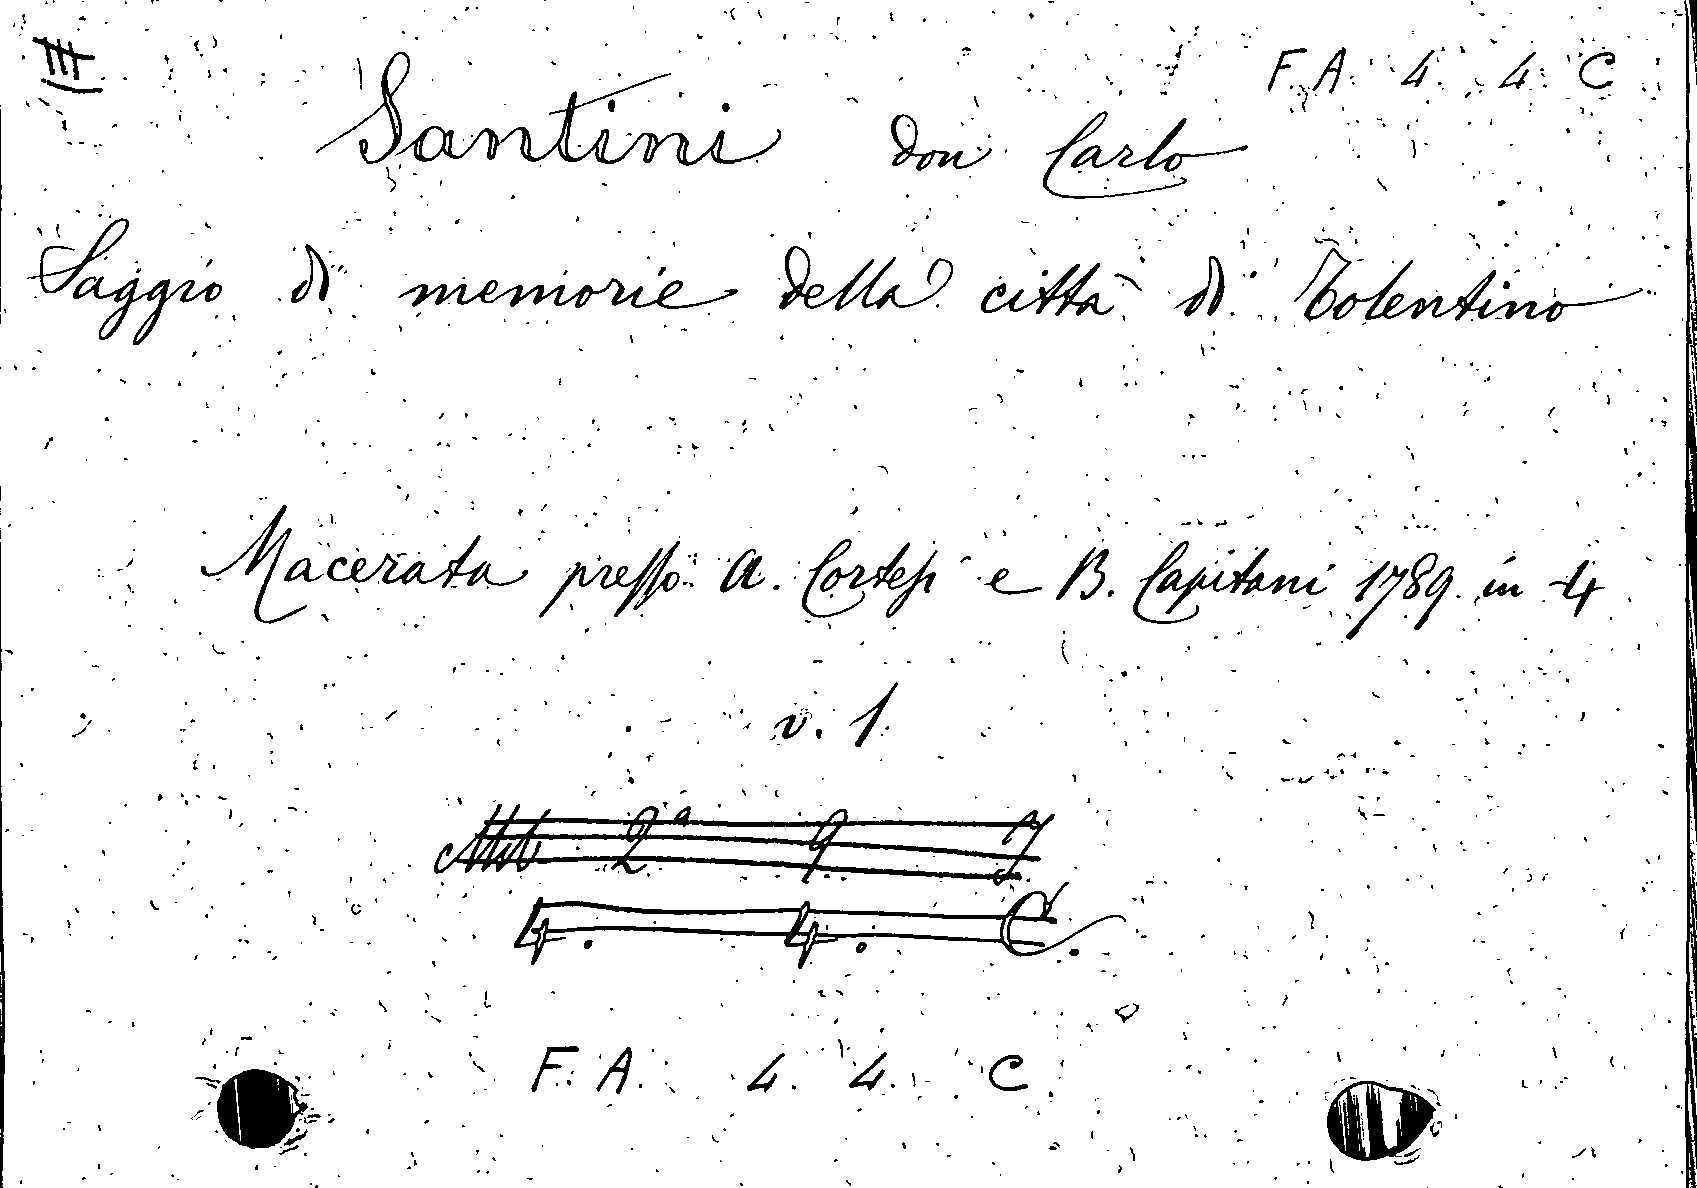 F. A. 4. 4. C
Santini don Carlo
Saggio di memorie della città di Tolentino
Macerata presso A. Cortesi e B. Capitani 1789 in 4
v. 1.
2ª 9 7
4. 4. C.
F. A. 4. 4. C